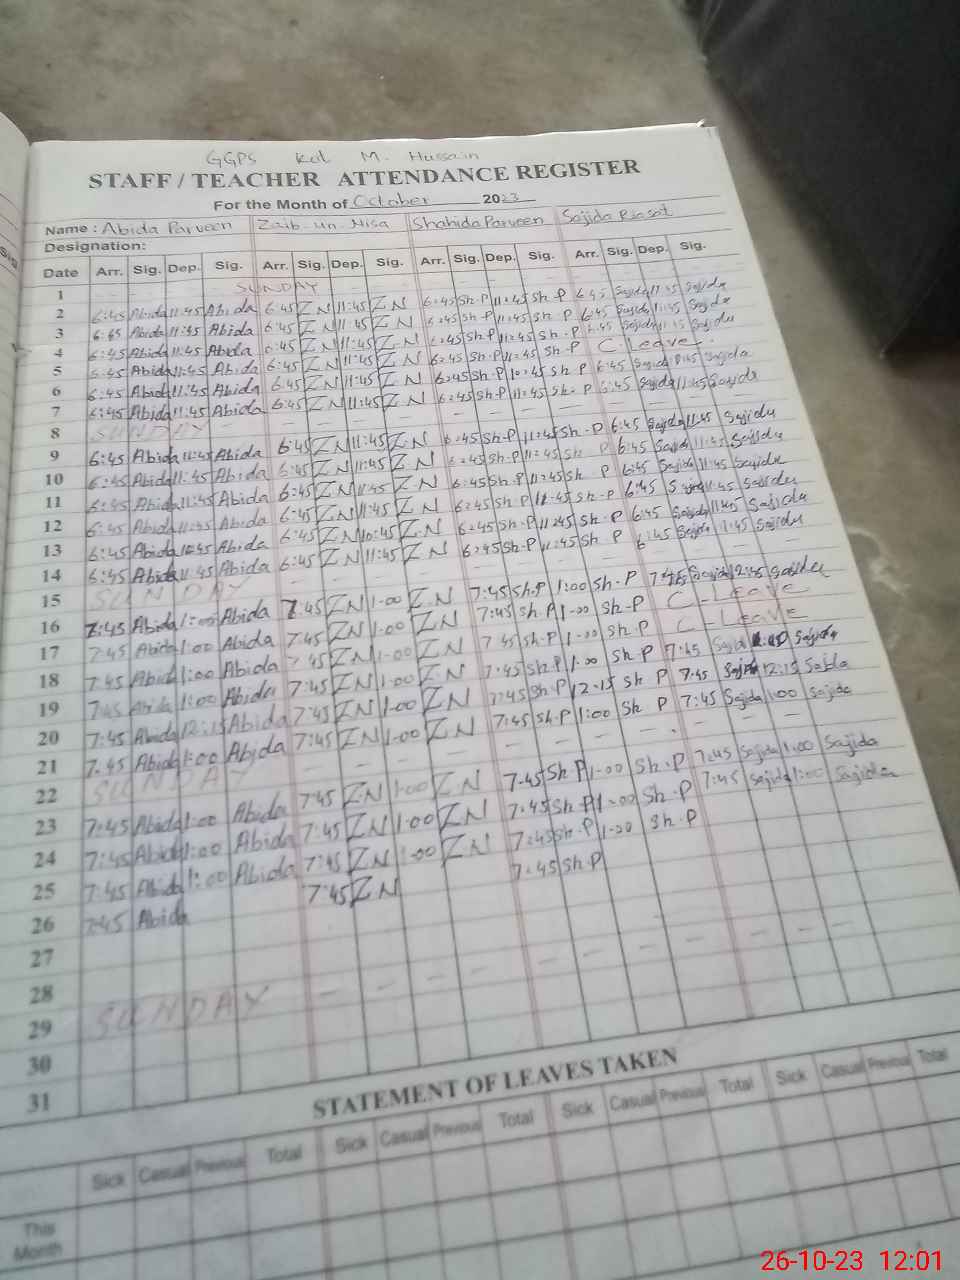 GGPS Kot M. Hussain
STAFF / TEACHER ATTENDANCE REGISTER
For the Month of October 2023
Name: Abida Parveen Zaib-un-Nisa Shahida Parveen Sajida Riasat
Designation:
Date Arr. Sig. Dep. Sig. Arr. Sig. Dep. Sig. Arr. Sig. Dep. Sig. Arr. Sig. Dep. Sig.
1 SUNDAY
2 6:45 Abida 11:45 Abida 6:45 ZN 11:45 ZN 6:45 Sh-P 11:45 Sh-P 6:45 Sajida 11:45 Sajida
3 Abida 11:45 Abida 6:45 ZN 11:45 ZN 6:45 Sh-P 11:45 Sh-P 6:45 Sajida 11:45 Sajida
4 6:45 Abida 11:45 Abida 6:45 ZN 11:45 ZN 6:45 Sh-P 11:45 Sh-P 6:45 Sajida 11:45 Sajida
5 6:45 Abida 11:45 Abida 6:45 ZN 11:45 ZN 6:45 Sh-P 11:45 Sh-P C-Leave
6 6:45 Abida 11:45 Abida 6:45 ZN 11:45 ZN 6:45 Sh-P 10:45 Sh-P 6:45 Sajida Sajida
7 6:45 Abida 11:45 Abida 6:45 ZN 11:45 ZN 6:45 Sh-P 11:45 Sh-P 6:45 Sajida 11:45 Sajida
8 SUNDAY
9 6:45 Abida 11:45 Abida 6:45 ZN 11:45 ZN 6:45 Sh-P 11:45 Sh-P 6:45 Sajida 11:45 Sajida
10 6:45 Abida 11:45 Abida 6:45 ZN 11:45 ZN 6:45 Sh-P 11:45 Sh P 6:45 Sajida 11:45 Sajida
11 6:45 Abida 11:45 Abida 6:45 ZN 11:45 ZN 6:45 Sh-P 11:45 Sh-P 6:45 Sajida 11:45 Sajida
12 6:45 Abida 11:45 Abida 6:45 ZN 11:45 ZN 6:45 Sh-P Sh-P 6:45 Sajida 11:45 Sajida
13 6:45 Abida Abida 6:45 ZN 10:45 ZN 6:45 Sh-P 11:45 Sh-P 6:45 Sajida 11:45 Sajida
14 6:45 Abida 11:45 Abida 6:45 ZN 11:45 ZN 6:45 Sh-P 11:45 Sh-P 6:45 Sajida 11:45 Sajida
15 SUNDAY
16 7:45 Abida 1:00 Abida 7:45 ZN 1-00 ZN 7:45 Sh-P 1:00 Sh-P 7:45 Sajida 12:45 Sajida
17 7:45 Abida 1:00 Abida 7:45 ZN 1-00 ZN 7:45 Sh-P 1-00 Sh-P C-Leave
18 7:45 Abida 1:00 Abida 7:45 ZN 1-00 ZN 7:45 Sh-P 1-00 Sh-P C-Leave
19 7:45 Abida 1:00 Abida 7:45 ZN 1-00 ZN 7:45 Sh-P 1:00 Sh-P 7:45 Sajida Sajida
20 7:45 Abida 12:15 Abida 7:45 ZN 1-00 ZN 7:45 Sh-P 12-15 Sh P 7:45 Sajida 12:15 Sajida
21 7:45 Abida 1:00 Abida 7:45 ZN 1-00 ZN 7:45 Sh-P 1:00 Sh P 7:45 Sajida 1:00 Sajida
22 SUNDAY
23 7:45 Abida 1:00 Abida 7:45 ZN 1:00 ZN 7:45 Sh P 1-00 Sh-P 7:45 Sajida 1:00 Sajida
24 7:45 Abida 1:00 Abida 7:45 ZN 1:00 ZN 7:45 Sh-P 1-00 Sh-P 7:45 Sajida 1:00 Sajida
25 7:45 Abida 1:00 Abida 7:45 ZN 1:00 ZN 7:45 Sh-P 1-00 Sh-P
26 7:45 Abida 7:45 ZN 7:45 Sh-P
27
28
29 SUNDAY
30
31
STATEMENT OF LEAVES TAKEN
Sick Casual Previous Total Sick Casual Previous Total Sick Casual Previous Total Sick Casual Previous Total
This Month
26-10-23 12:01